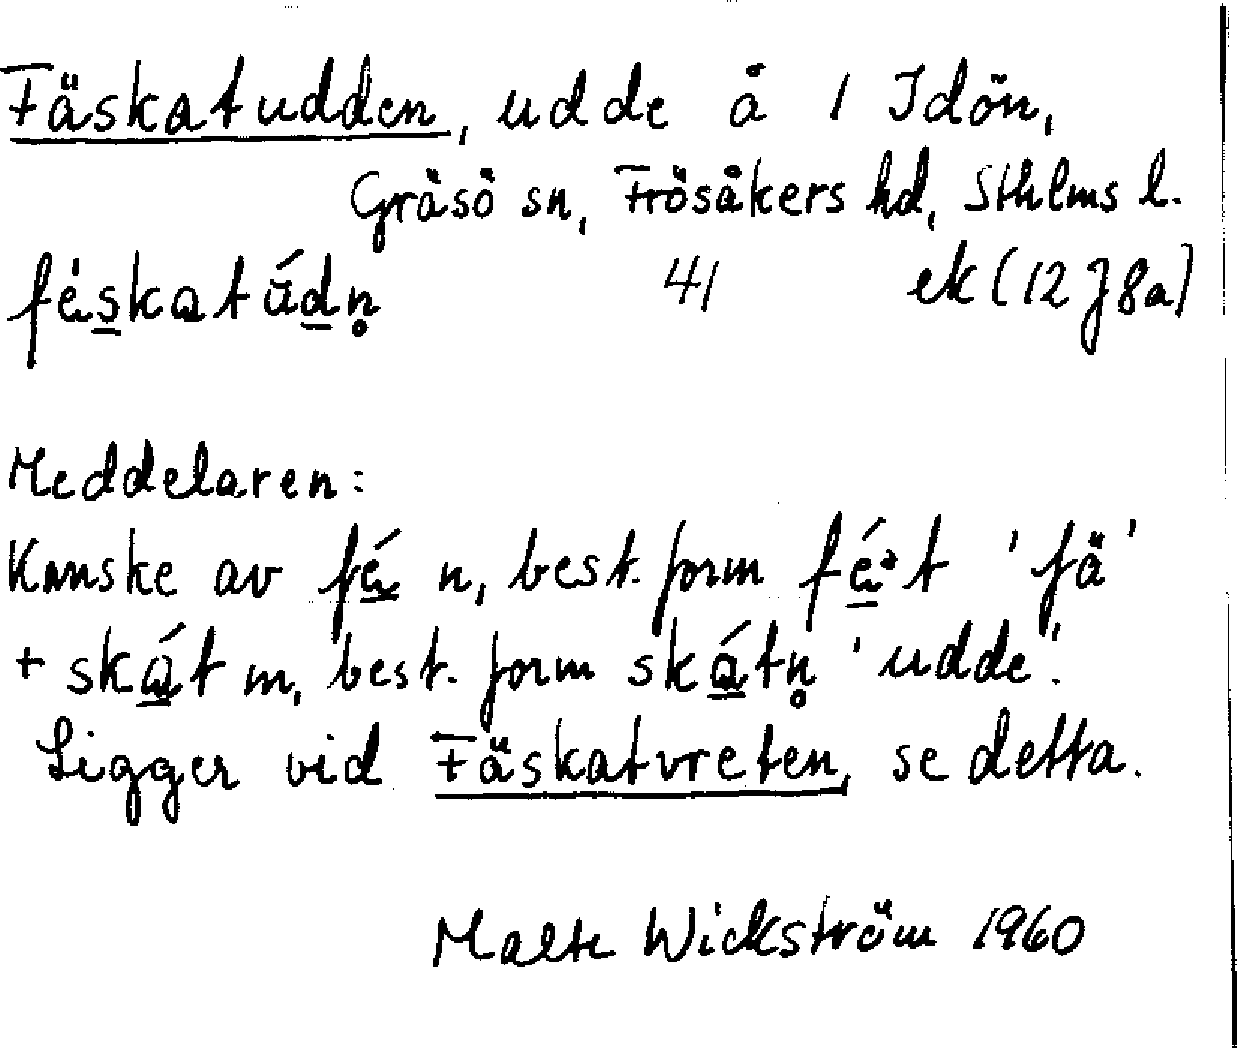 Fäskatudden, udde å 1 Idön,
Gräsö sn, Frösåkers hd, Sthlms l.
féskatúdn̥ 41 ek (12 J 8a)
Meddelaren:
Kanske av fé n, best. form féˑt 'fä'
+ skát m, best. form skátn̥ 'udde'.
Ligger vid Fäskatvreten, se detta.
Malte Wickström 1960